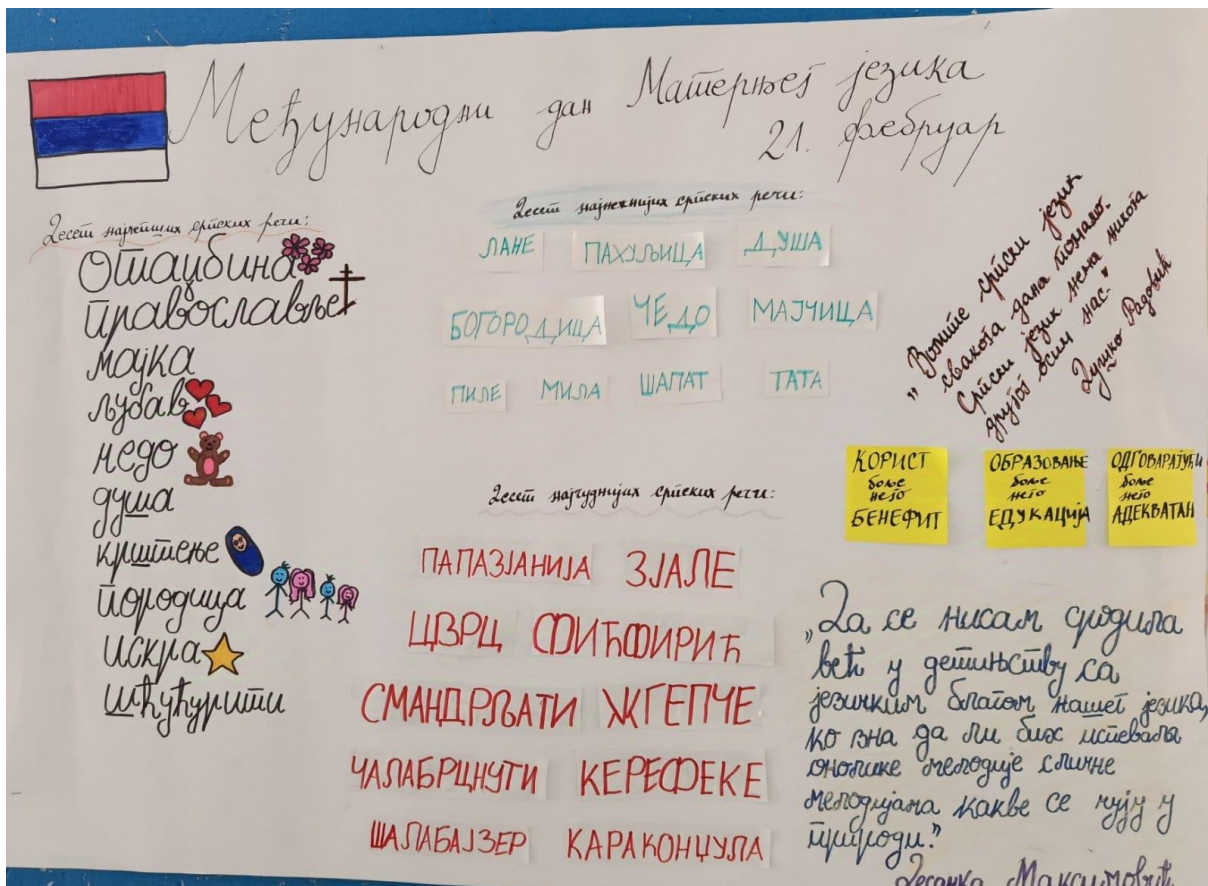 Међународни дан Матерњег језика
21. фебруар
Десет најлепших српских речи:
отаџбина
православље
мајка
љубав
чедо
душа
крштење
породица
искра
шћућурити
Десет најнежнијих српских речи:
ЛАНЕ ПАХУЉИЦА ДУША
БОГОРОДИЦА ЧЕДО МАЈЧИЦА
ПИЛЕ МИЛА ШАПАТ ТАТА
Десет најчуднијих српских речи:
ПАПАЗЈАНИЈА ЗЈАЛЕ
ЦВРЦ ФИЋФИРИЋ
СМАНДРЉАТИ ЖГЕПЧЕ
ЧАЛАБРЦНУТИ КЕРЕФЕКЕ
ШАЛАБАЈЗЕР КАРАКОНЏУЛА
„Волите српски језик
свакога дана помало.
Српски језик нема никога
другог осим нас."
Душко Радовић
КОРИСТ
боље
него
БЕНЕФИТ
ОБРАЗОВАЊЕ
боље
него
ЕДУКАЦИЈА
ОДГОВАРАЈУЋИ
боље
него
АДЕКВАТАН
„Да се нисам сродила
већ у детињству са
језичким благом нашег језика,
ко зна да ли бих испевала
онолике мелодије сличне
мелодијама какве се чују у
природи."
Десанка Максимовић